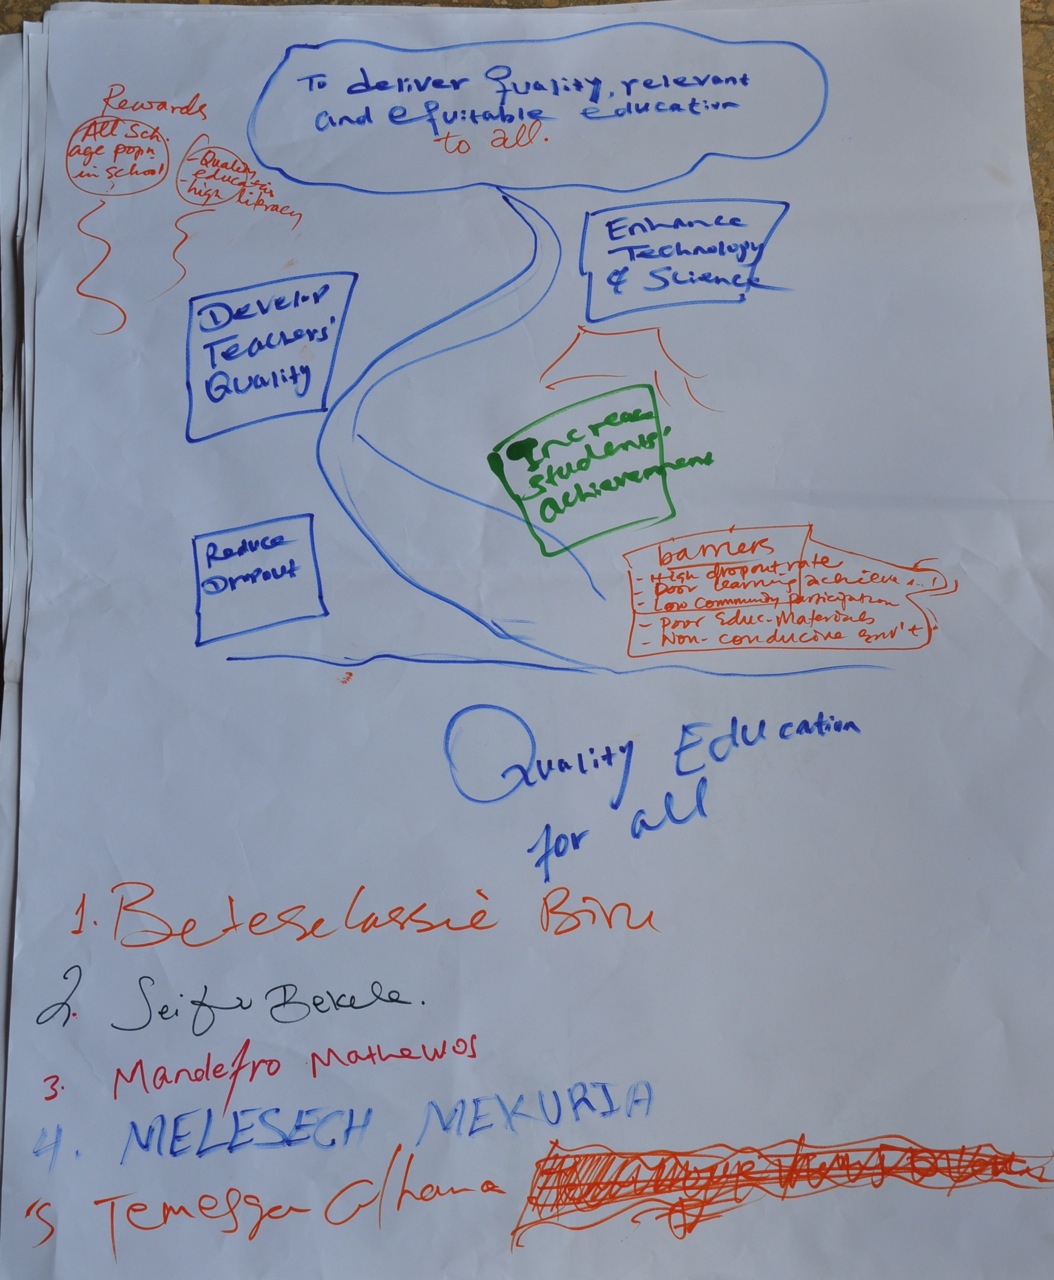 To deliver Quality, relevant
and equitable education
to all.
Rewards
All Sch.
age popn
in school
- Quality
education
- high literacy
Enhance
Technology
& Science
Develop
Teachers'
Quality
Increase
students'
achievement
Reduce
Dropout
barriers
- High dropout rate
- Poor Learning achieve
- Low Community participation
- Poor Educ-Materials
- Non-conducive env't
Quality Education
for all
1. Beteselassie Biru
2. Seifu Bekele.
3. Mandefro Mathewos
4. MELESECH MEKURIA
5 Temesgen